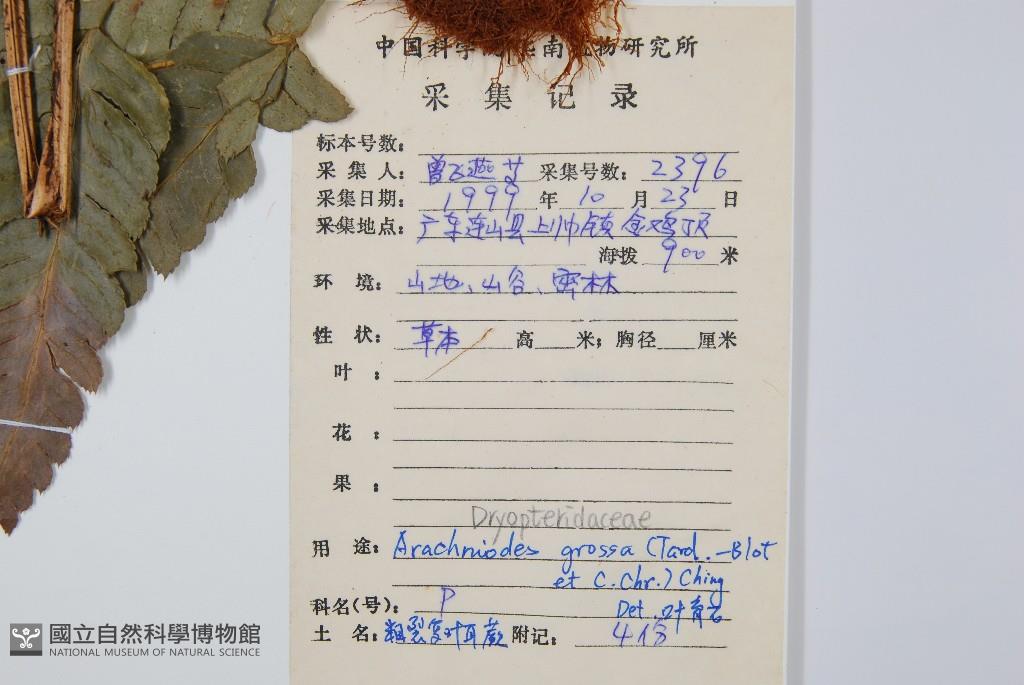 中国科学 华南植物研究所
采集记录
标本号数：
采集人：曾飞燕等 采集号数：2396
采集日期：1999年10月23日
采集地点：广东连山县上帅镇金鸡顶
海拨 900 米
环境：山地、山谷、密林
性状：草本 高 米；胸径 厘米
叶：
花：
果：
Dryopteridaceae
用途：Arachniodes grossa (Tard.-Blot
et C.Chr.) Ching
科名(号)：P Det. 叶育石
土名：粗裂复叶耳蕨 附记：4份
國立自然科學博物館
NATIONAL MUSEUM OF NATURAL SCIENCE